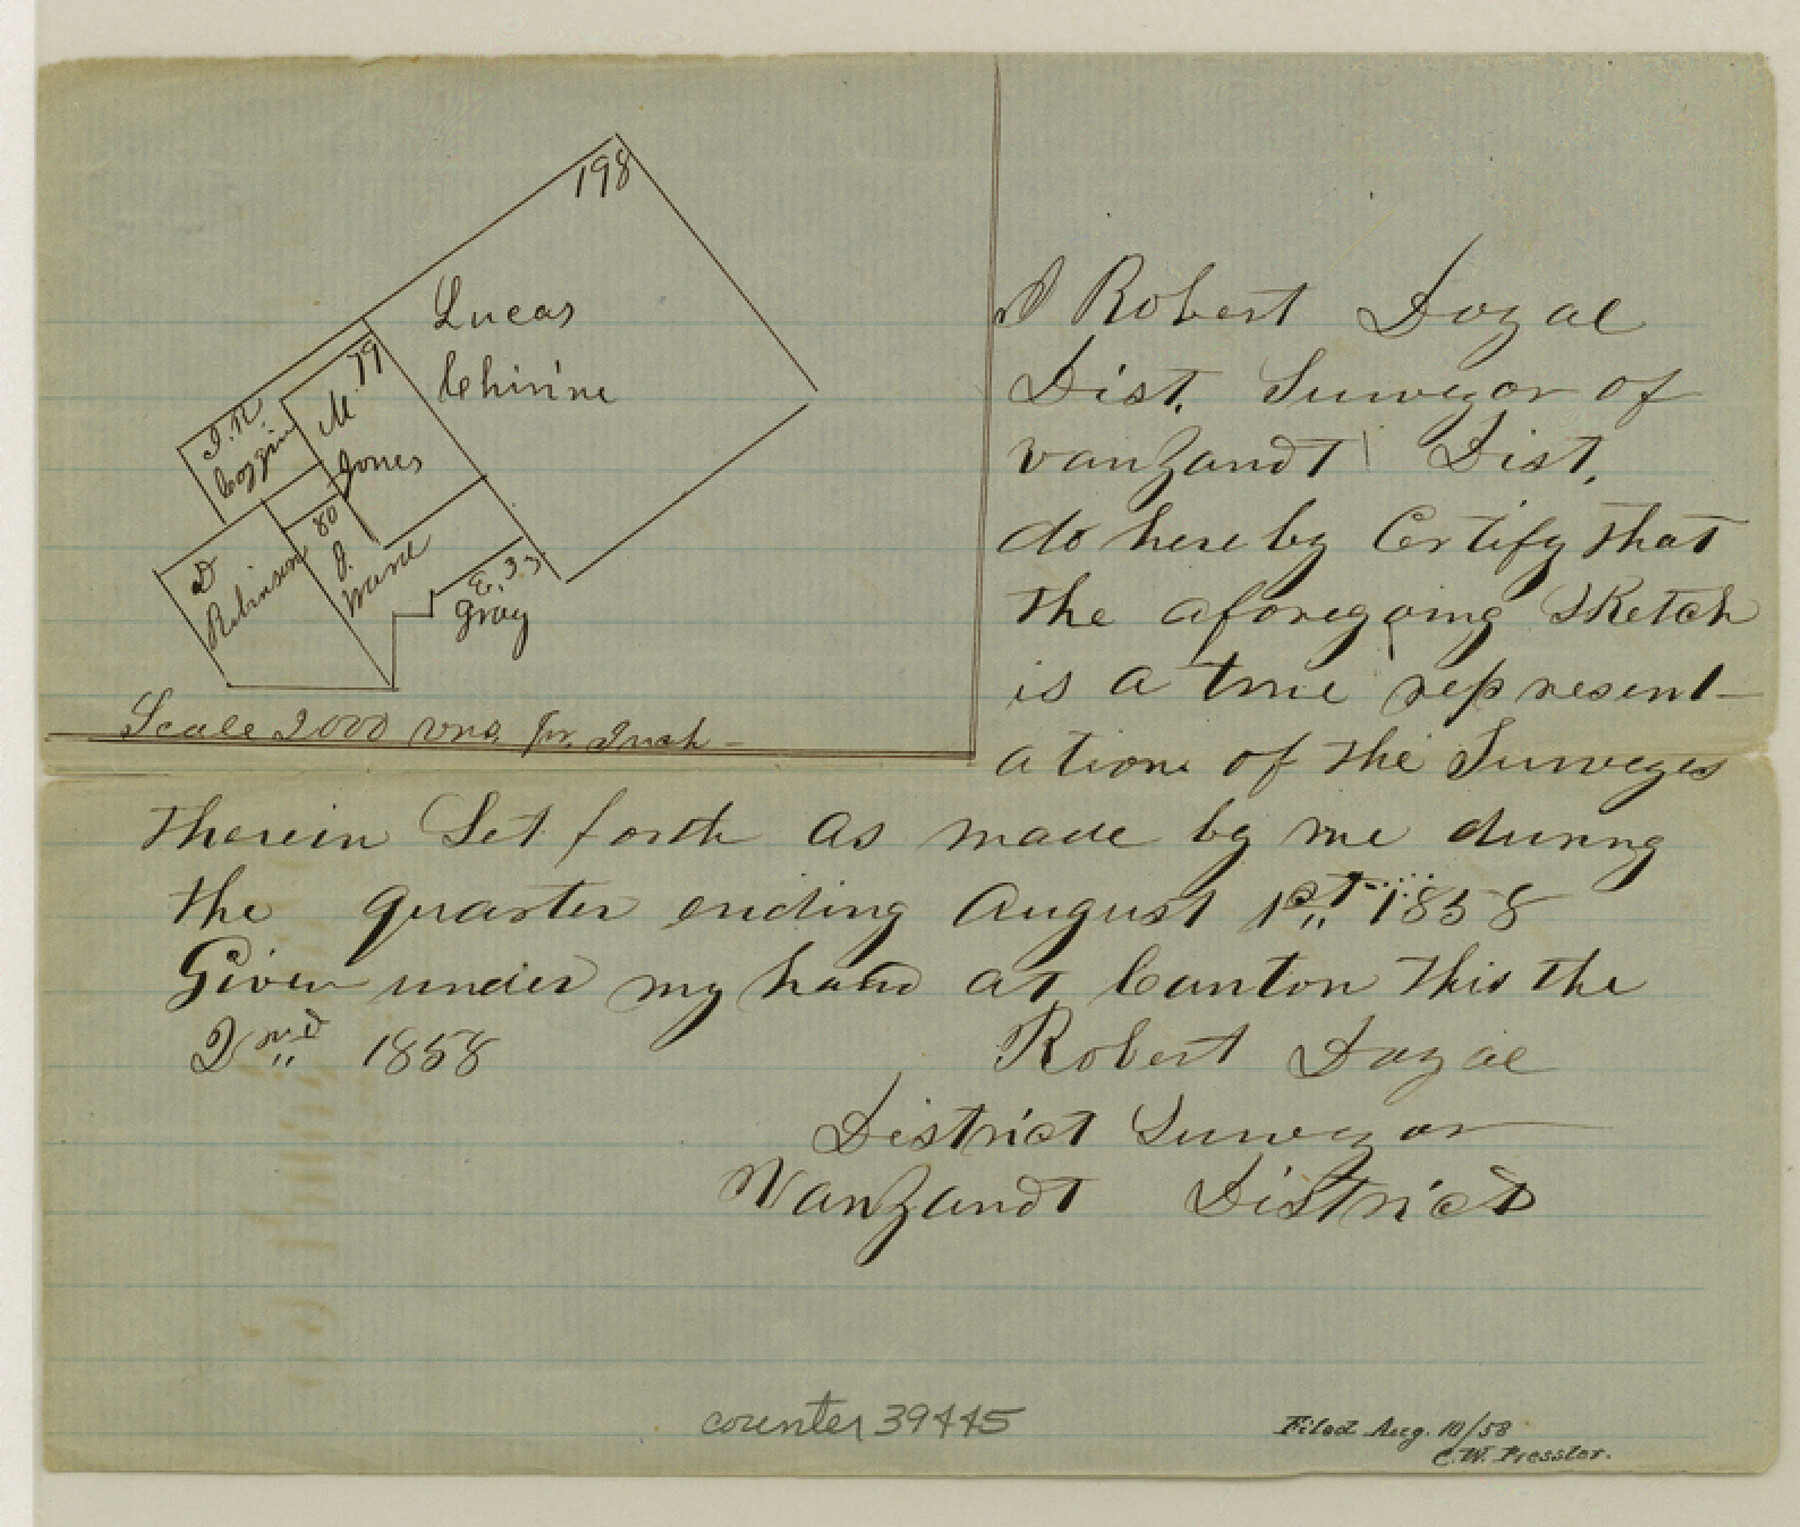 198
Lucas
Chirine
79
M.
Jones
J. N.
Coggin
80
J.
Ward
D
Robinson
E. 33
Gray
Scale 2000 vrs. pr. Inch
I Robert Dozal
Dist. Surveyor of
vanzandt Dist.
do hereby Certify that
the aforegoing Sketch
is a true represent-
ation of the Surveyes
therein Set forth as made by me during
the quarter ending August 1st 1858
Given under my hand at Canton this the
2nd 1858
Robert Dozal
District Surveyor
Vanzandt District
counter 39445
Filed Aug. 10/58
C.W. Pressler.